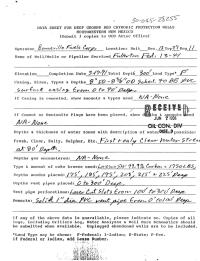 30-045-28255
DATA SHEET FOR DEEP GROUND BED CATHODIC PROTECTION WELLS
NORTHWESTERN NEW MEXICO
(Submit 3 copies to OCD Aztec Office)
Operator Location: Unit Sec. 13 Twp 27 Rng 11
Name of Well/Wells or Pipeline Serviced Fullerton Fed. 13-41
Elevation Completion Date Total Depth 300' Land Type* F
Casing, Sizes, Types & Depths
surface casing From 0 To 90 Deep.
If Casing is cemented, show amounts & types used N/A-None
If Cement or Bentonite Plugs have been placed, show
N/A-None
RECEIVED
OIL CON. DIV.
DIST. 3
Depths & thickness of water zones with description of water when possible:
Fresh, Clear, Salty, Sulphur, Etc. First & only Clean Water Strata
at 90' Depth.
Depths gas encountered: N/A-None
Type & amount of coke breeze used:
Depths anodes placed: 175', 185', 195',
Depths vent pipes placed: 0 to 300' Deep.
Vent pipe perforations: Laser Cut Slots From 100' to 300' Deep
Remarks: Solid 1" dia. PVC vent pipe From 0' to 100' Deep.
If any of the above data is unavailable, please indicate so. Copies of all
logs, including Drillers Log, Water Analyses & Well Bore Schematics should
be submitted when available. Unplugged abandoned wells are to be included.
*Land Type may be shown: F-Federal; I-Indian; S-State; P-Fee.
If Federal or Indian, add Lease Number.